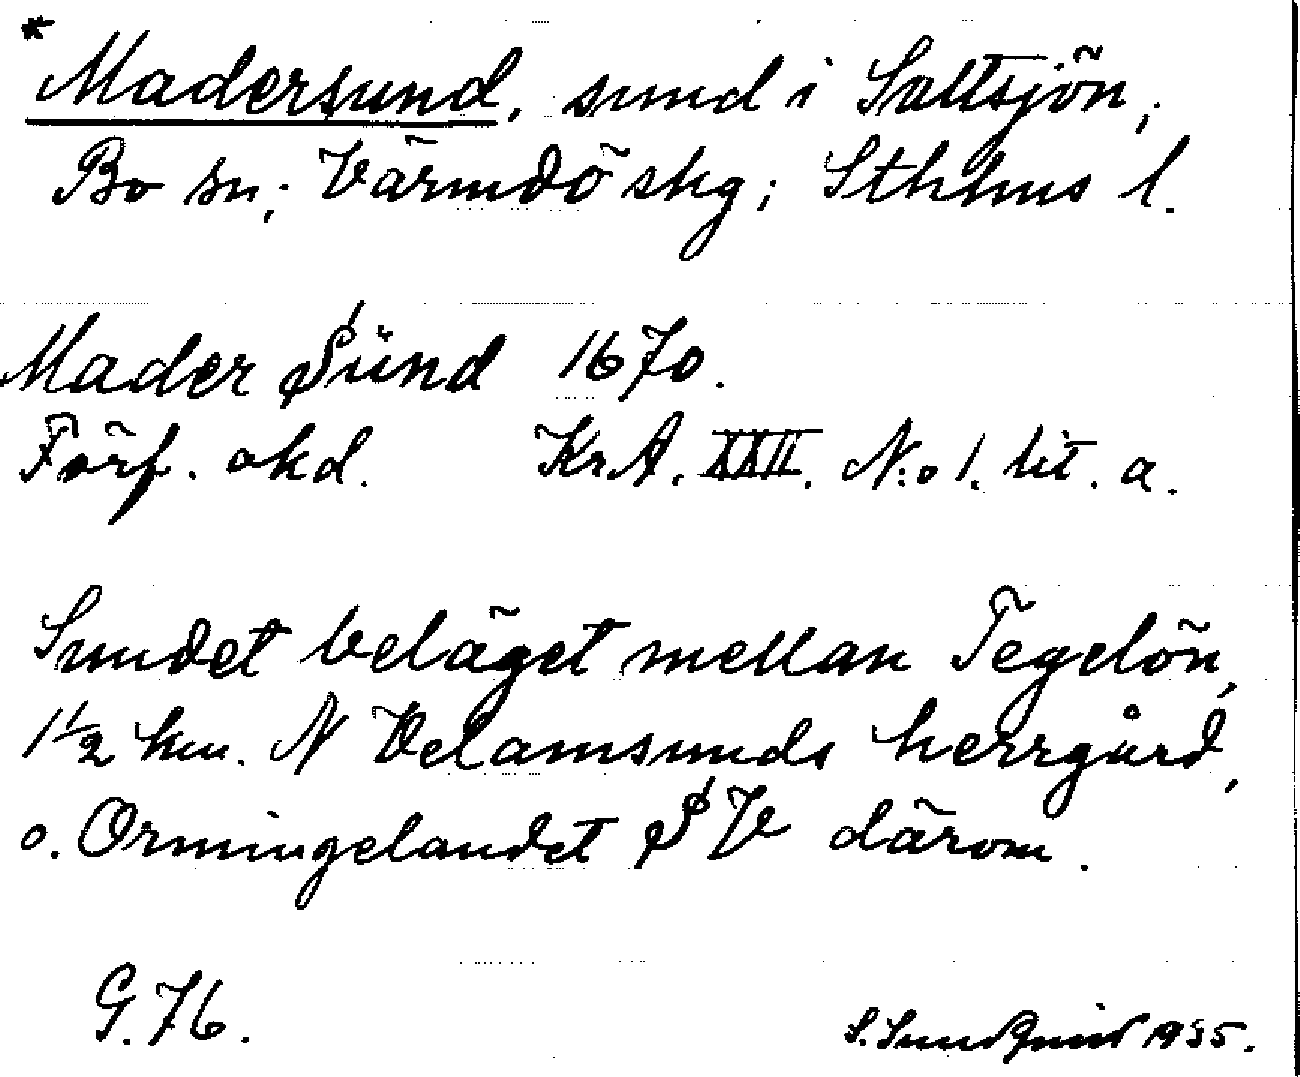 * Madersund, sund i Saltsjön,
Bo sn; Värmdö skg; Sthlms l.
Mader Sünd 1670.
Förf. okd. KrA. XXII. N:o 1. lit. a.
Sundet beläget mellan Tegelön,
1½ km. N Velamsunds herrgård,
o. Ormingelandet SV därom.
G.76.
S. Sundquist 1935.